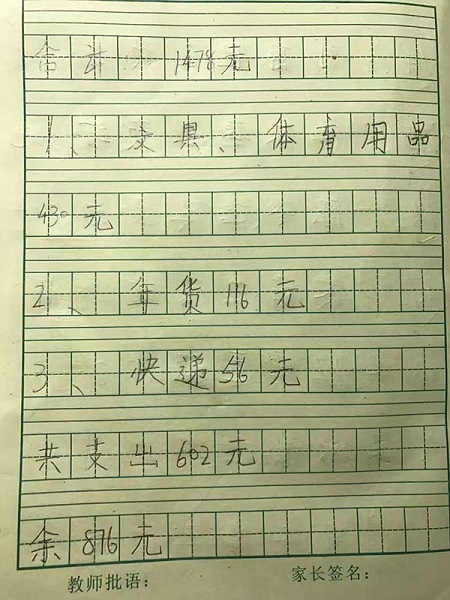 合计 1478元
1、文具、体育用品
430元
2、年货116元
3、快递56元
共支出602元
余876元
教师批语： 家长签名：